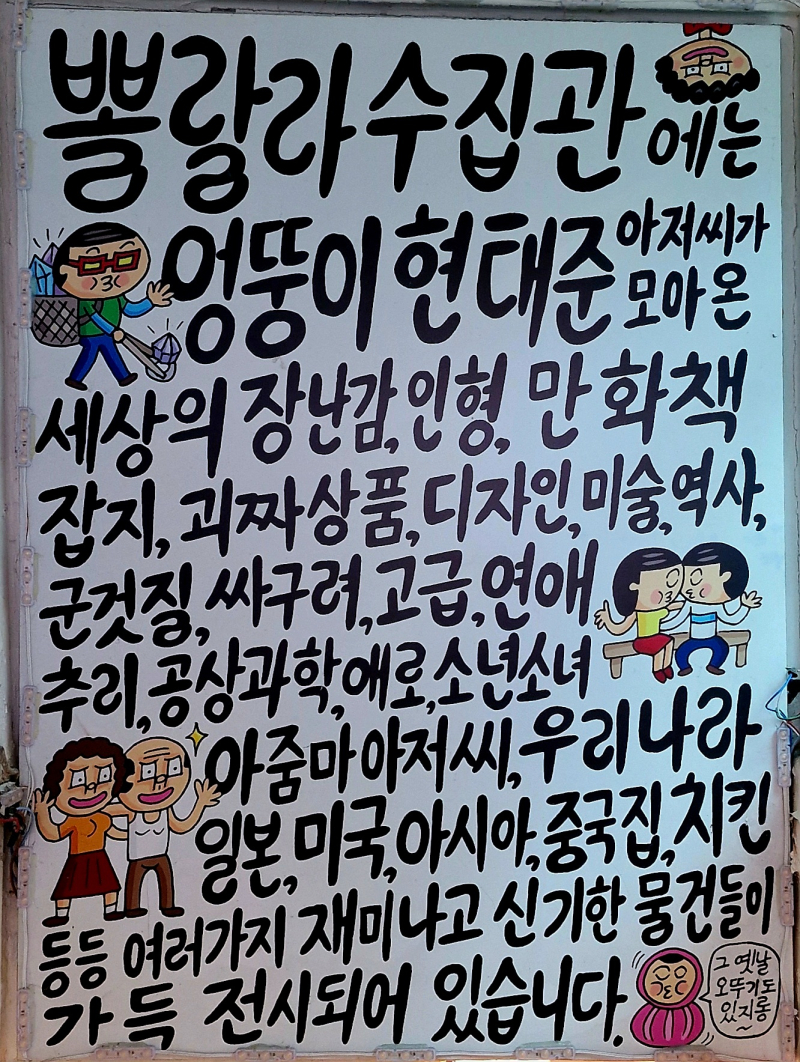 뽈랄라 수집관에는
엉뚱이 현태준 아저씨가
모아온
세상의 장난감, 인형, 만화책
잡지, 괴짜상품, 디자인, 미술, 역사,
군것질, 싸구려, 고급, 연애
추리, 공상과학, 애로, 소년소녀
아줌마 아저씨, 우리나라
일본, 미국, 아시아, 중국집, 치킨
등등 여러가지 재미나고 신기한 물건들이
가득 전시되어 있습니다.
그 옛날
오뚜기도
있지롱~